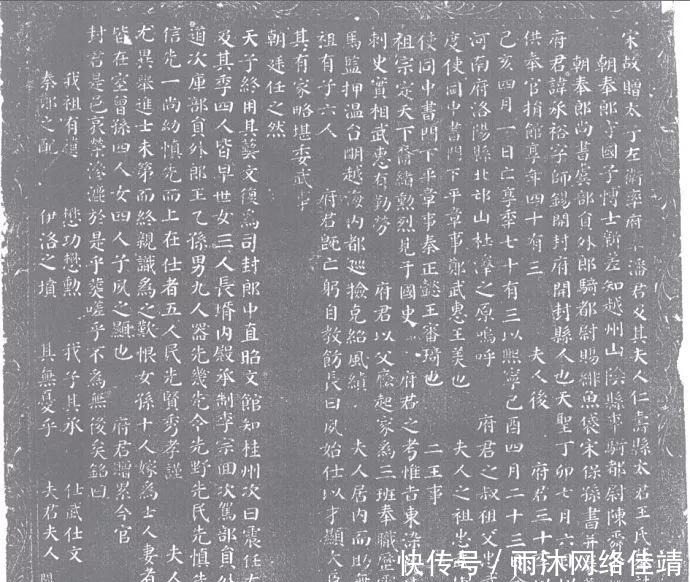 宋故贈太子左衛率府率潘君父其夫人仁壽縣太君王氏
朝奉郎守國子博士新差知越州山陰縣事騎都尉陳舜
朝奉郎尚書虞部員外郎騎都尉賜緋魚袋宋保孫書并
府君諱承裕字師錫開封府開封縣人也天聖丁卯七月六
供奉官捐館享年四十有三 夫人後 府君三十
己亥四月一日亡享年七十有三以熙寧己酉四月二十三
河南府洛陽縣北邙山杜澤之原嗚呼 府君之叔祖父忠
度使同中書門下平章事鄭武惠王美也 夫人之祖忠
使同中書門下平章事秦正懿王審琦也 二王事
祖宗定天下裔緒勲烈見于國史 府君之考惟吉東染
刺史實相武惠有勤勞 府君以父廕起家為三班奉職
馬監押溫台明越海內都巡檢克紹風績 夫人居內而助
祖有子六人 府君旣亡躬自教飭長曰夙始仕以才顯大
其有家略堪委武事
朝廷任之然
天子終用其藝文復為司封郎中直昭文館知桂州次曰震任左
及其季四人皆早世女三人長壻內殿承制李宗回次駕部員外
道次庫部員外郎王乙孫男九人器先幾先令先野先民先慎先
信先一尚幼慎先而上在仕者五人民先賢秀孝謹 夫人
尤異舉進士未第而終親識為之歎恨女孫十人嫁為士人妻者
皆在室曾孫四人女四人子夙之顯也 府君贈累今官
封君是邑哀榮滲漉於是乎葬嗟乎不為無後矣銘曰
我祖有 懋功懋勲 我子其承 仕武仕文
秦鄭之配 伊洛之墳 其無憂乎 夫君夫人
快传号／雨沐网络佳靖